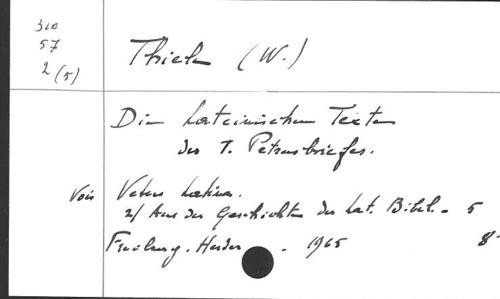 310
57
2 (5)
Thiele (W.)
Die Lateinischen Texte
des 1. Petrusbriefes.
Vois Vetus Latina.
2/ Aus der Geschichte der Lat. Bibel. 5
Freiburg. Herder. 1965 8°